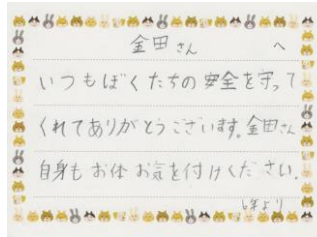 金田さん へ
いつもぼくたちの安全を守って
くれてありがとうございます。金田さん
自身もお体お気を付けください。
6年より